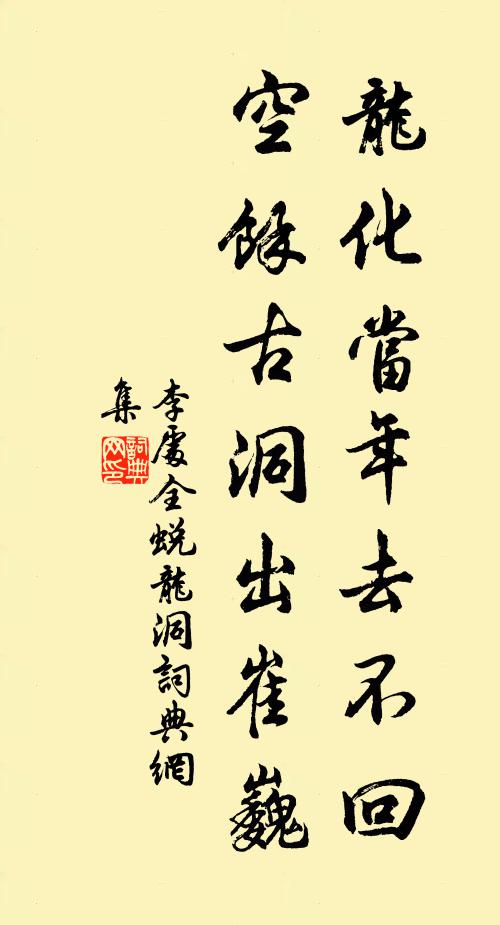 龍化當年去不回
空餘古洞出崔巍
李處全蛻龍洞詞典網
集
詞典
网印